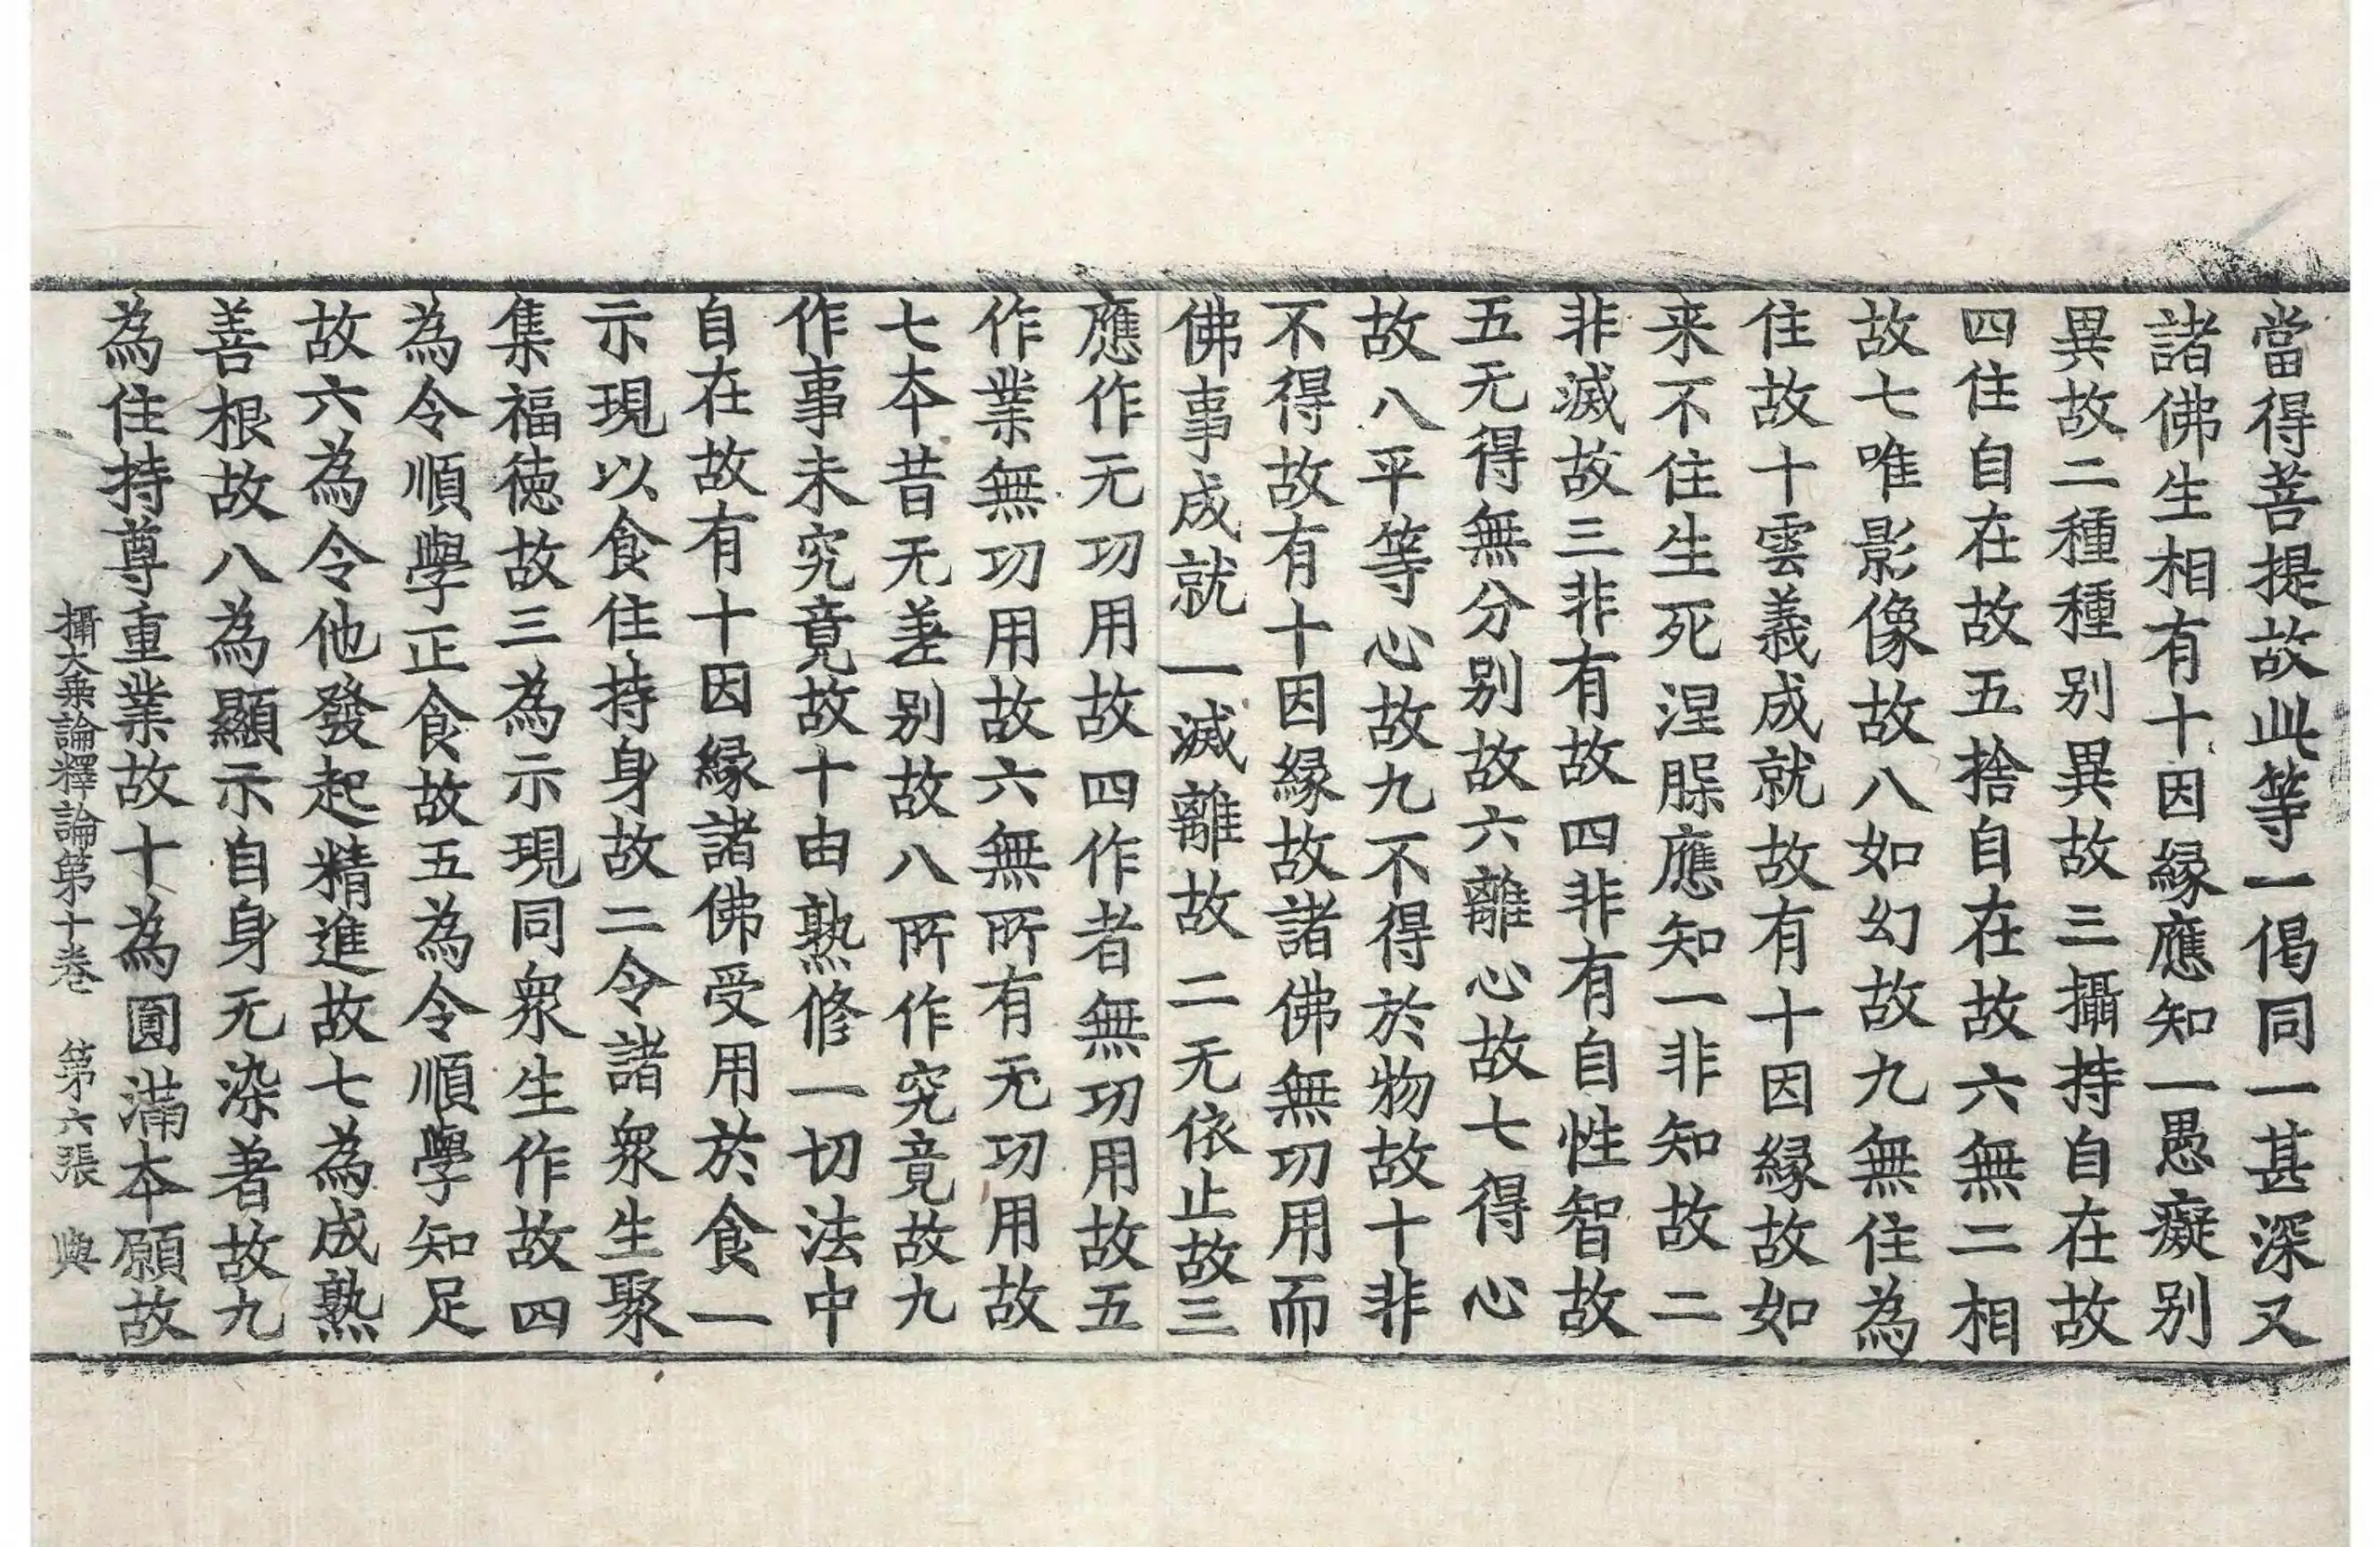 當得菩提故此等一偈同一甚深又
諸佛生相有十因縁應知一愚癡别
異故二種種别異故三攝持自在故
四住自在故五捨自在故六無二相
故七唯影像故八如幻故九無住為
住故十雲義成就故有十因縁故如
来不住生死涅脲應知一非知故二
非滅故三非有故四非有自性智故
五无得無分别故六離心故七得心
故八平等心故九不得於物故十非
不得故有十因縁故諸佛無功用而
佛事成就一滅離故二无依止故三
應作无功用故四作者無功用故五
作業無功用故六無所有无功用故
七夲昔无差别故八所作究竟故九
作事未究竟故十由熟修一切法中
自在故有十因縁諸佛受用於食一
示現以食住持身故二令諸衆生聚
集福徳故三為示現同衆生作故四
為令順學正食故五為令順學知足
故六為令他發起精進故七為成熟
善根故八為顯示自身无染著故九
為住持尊重業故十為圓滿夲願故
攝大乗論釋論第十卷　第六張　與